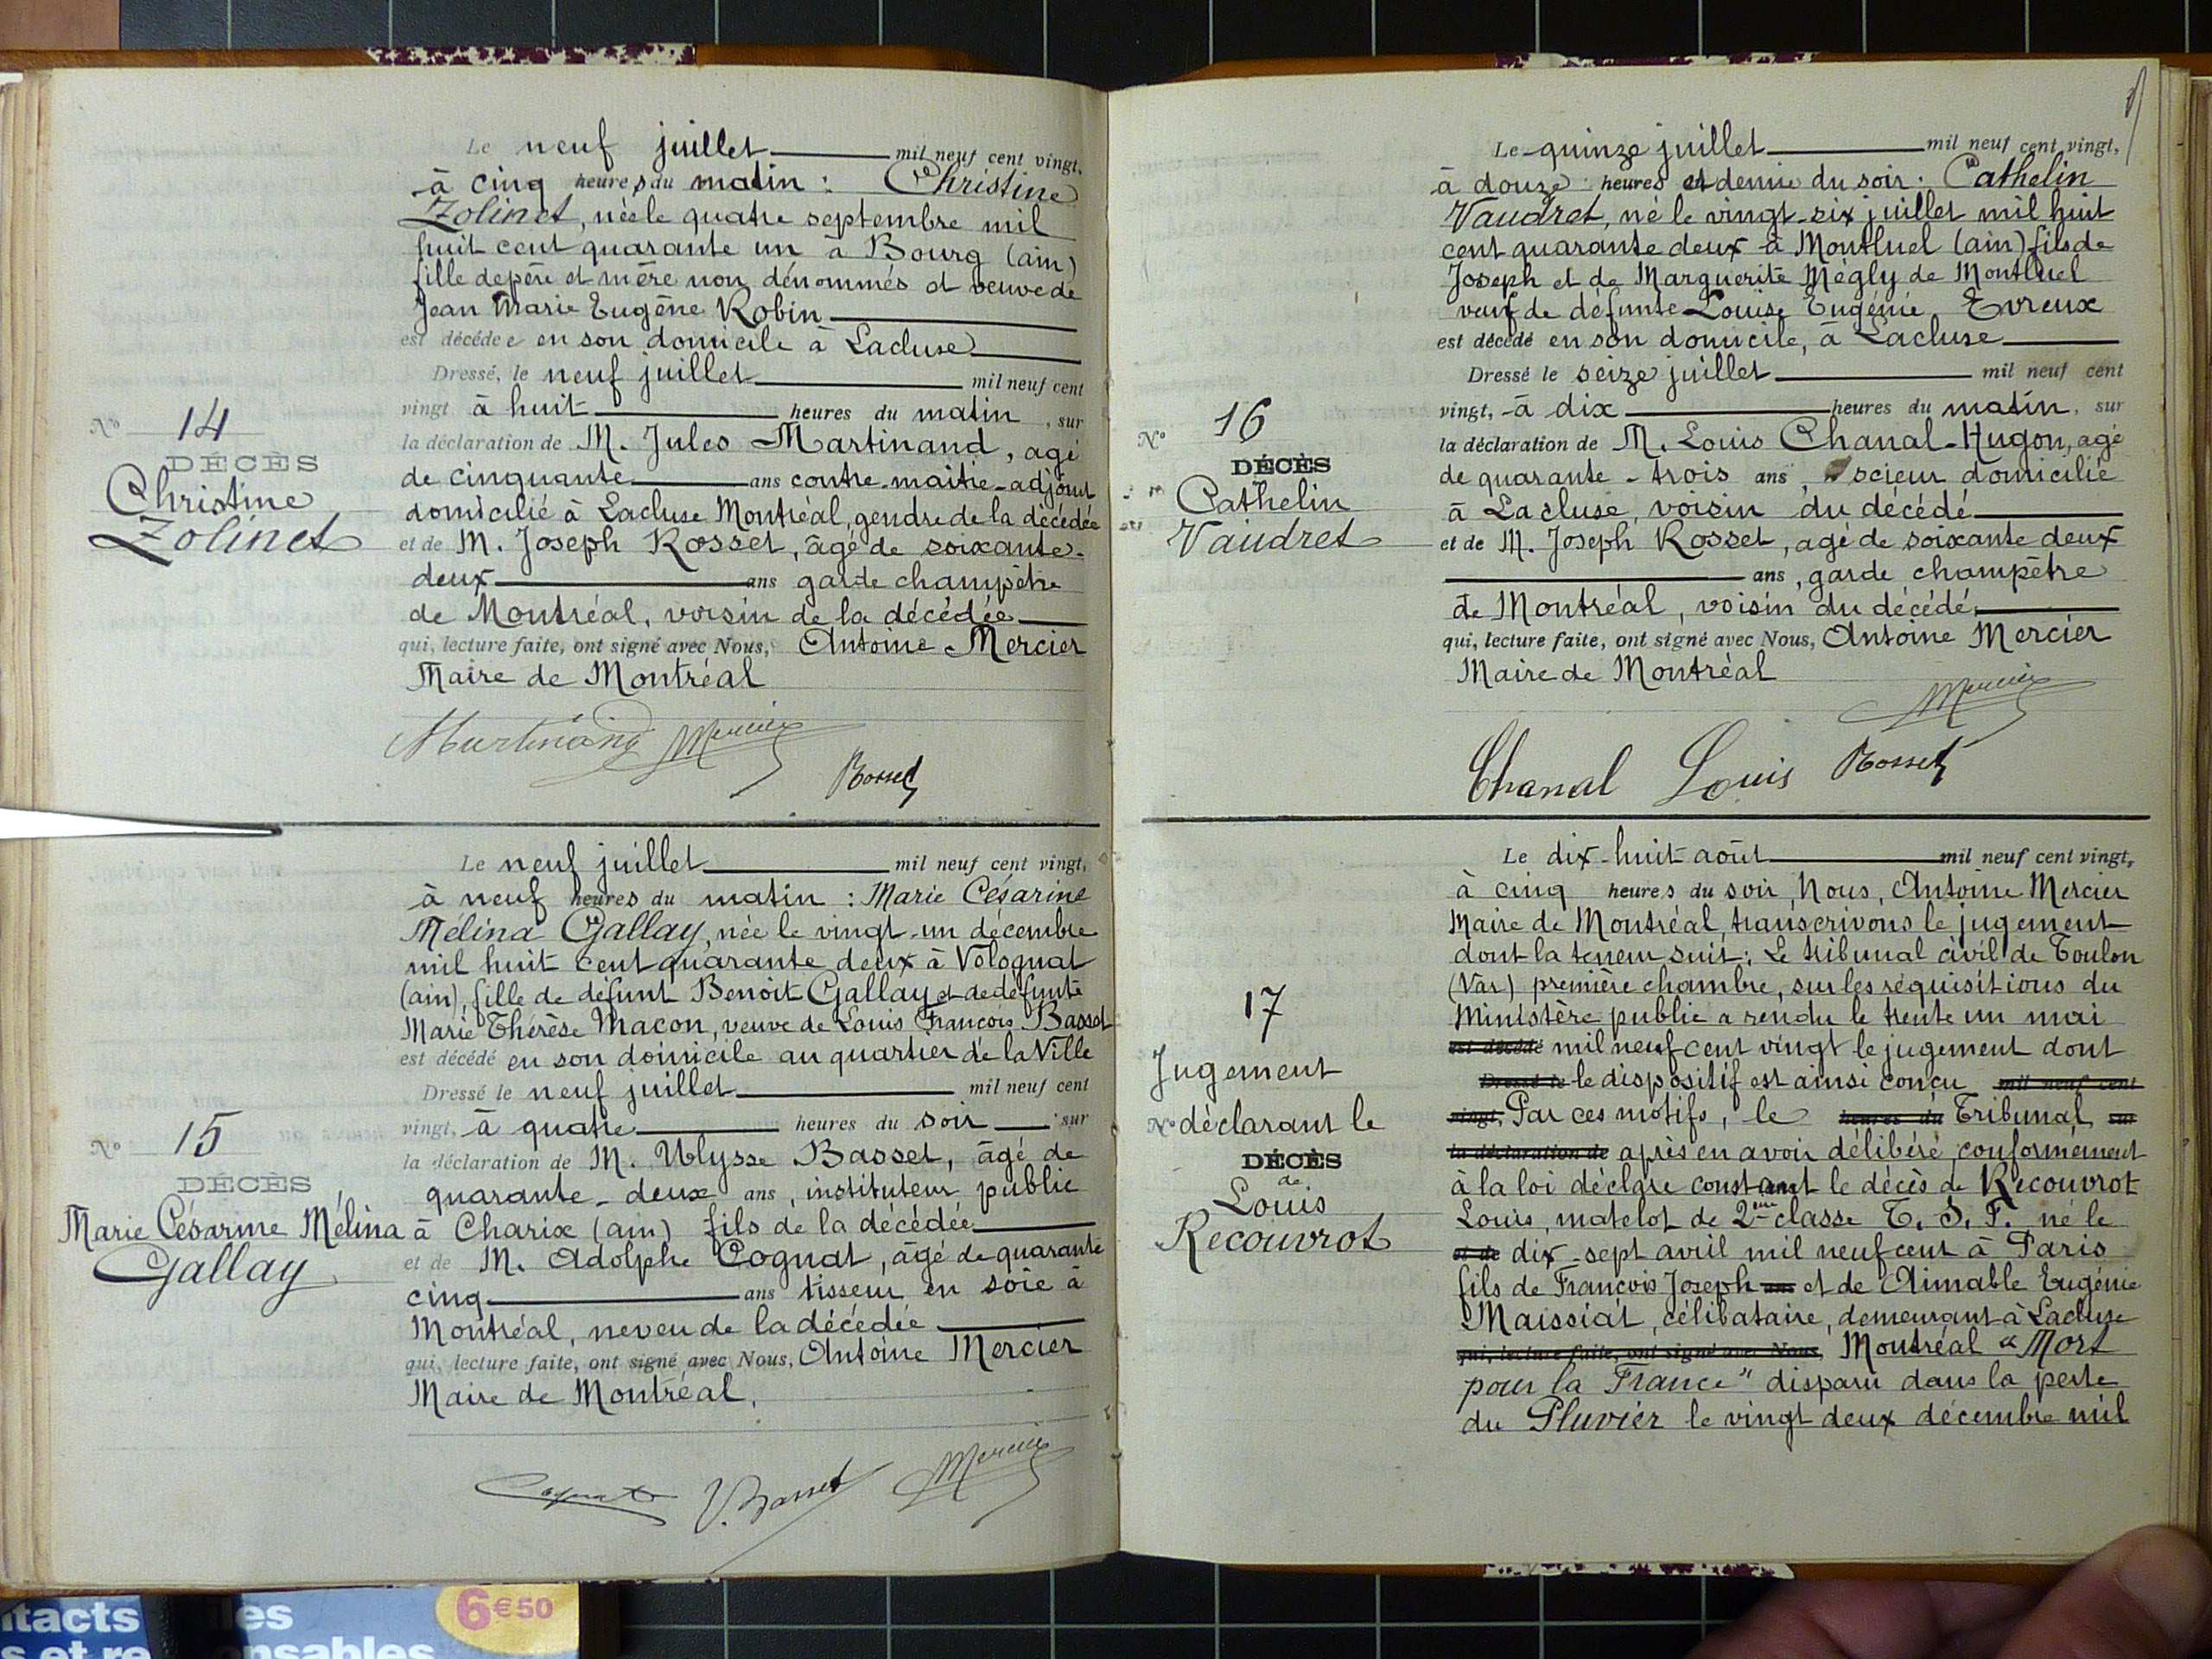 Le neuf juillet mil neuf cent vingt,
à cinq heures du matin : Christine
Zolinet, née le quatre septembre mil
huit cent quarante un à Bourg (ain)
fille de père et mère non dénommés et veuve de
Jean Marie Eugène Robin
est décédée en son domicile à Lacluse
Dressé, le neuf juillet mil neuf cent
vingt à huit heures du matin, sur
la déclaration de M. Jules Martinand, agé
de cinquante ans contre-maitre-adjoint
domicilié à Lacluse Montréal, gendre de la décédée
et de M. Joseph Rosset, âgé de soixante-
deux ans garde champêtre
de Montréal, voisin de la décédée
qui, lecture faite, ont signé avec Nous, Antoine Mercier
Maire de Montréal
Martinand Mercier
Rosset
No 14
DÉCÈS
Christine
Zolinet
Le neuf juillet mil neuf cent vingt,
à neuf heures du matin : Marie Césarine
Mélina Gallay, née le vingt-un décembre
mil huit cent quarante deux à Volognat
(ain), fille de défunt Benoît Gallay et de défunte
Marie Thérèse Macon, veuve de Louis François Basset
est décédé en son domicile au quartier de la Ville
Dressé le neuf juillet mil neuf cent
vingt, à quatre heures du soir sur
la déclaration de M. Ulysse Basset, âgé de
quarante-deux ans, instituteur public
à Charix (ain) fils de la décédée
et de M. Adolphe Cognat, âgé de quarante
cinq ans tisseur en soie à
Montréal, neveu de la décédée
qui, lecture faite, ont signé avec Nous, Antoine Mercier
Maire de Montréal,
Cognat U. Basset Mercier
No 15
DÉCÈS
Marie Césarine Mélina
Gallay
Le quinze juillet mil neuf cent vingt,
à douze heures et demie du soir. Cathelin
Vaudret, né le vingt-six juillet mil huit
cent quarante deux à Montluel (ain) fils de
Joseph et de Marguerite Mégly de Montluel
veuf de défunte Louise Eugénie Evreux
est décédé en son domicile, à Lacluse
Dressé le seize juillet mil neuf cent
vingt, à dix heures du matin, sur
la déclaration de M. Louis Chanal-Hugon, agé
de quarante-trois ans, scieur domicilié
à La cluse, voisin du décédé
et de M. Joseph Rosset, agé de soixante deux
ans, garde champêtre
de Montréal, voisin du décédé
qui, lecture faite, ont signé avec Nous, Antoine Mercier
Maire de Montréal
Mercier
Chanal Louis Rosset
No 16
DÉCÈS
Cathelin
Vaudret
Le dix-huit août mil neuf cent vingt,
à cinq heures du soir, Nous, Antoine Mercier
Maire de Montréal, transcrivons le jugement
dont la teneur suit : Le tribunal civil de Toulon
(Var) première chambre, sur les réquisitions du
Ministère public a rendu le trente un mai
est décédé mil neuf cent vingt le jugement dont
Dressé le le dispositif est ainsi conçu mil neuf cent
vingt, Par ces motifs, le heures du Tribunal, sur
la déclaration de après en avoir délibéré conformément
à la loi déclare constant le décès de Recouvrot
Louis, matelot de 2me classe T. S. F. né le
et de dix-sept avril mil neuf cent à Paris
fils de François Joseph ans et de Aimable Eugénie
Maissiat, célibataire, demeurant à Lacluse
qui, lecture faite, ont signé avec Nous, Montréal "Mort
pour la France" disparu dans la perte
du Pluvier le vingt deux décembre mil
17
Jugement
No déclarant le
DÉCÈS
de
Louis
Recouvrot
6€50